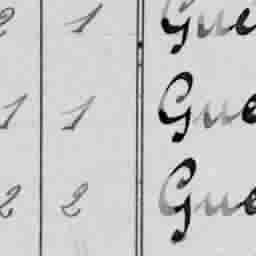 2 1 Gue
1 1 Gue
2 2 Gue